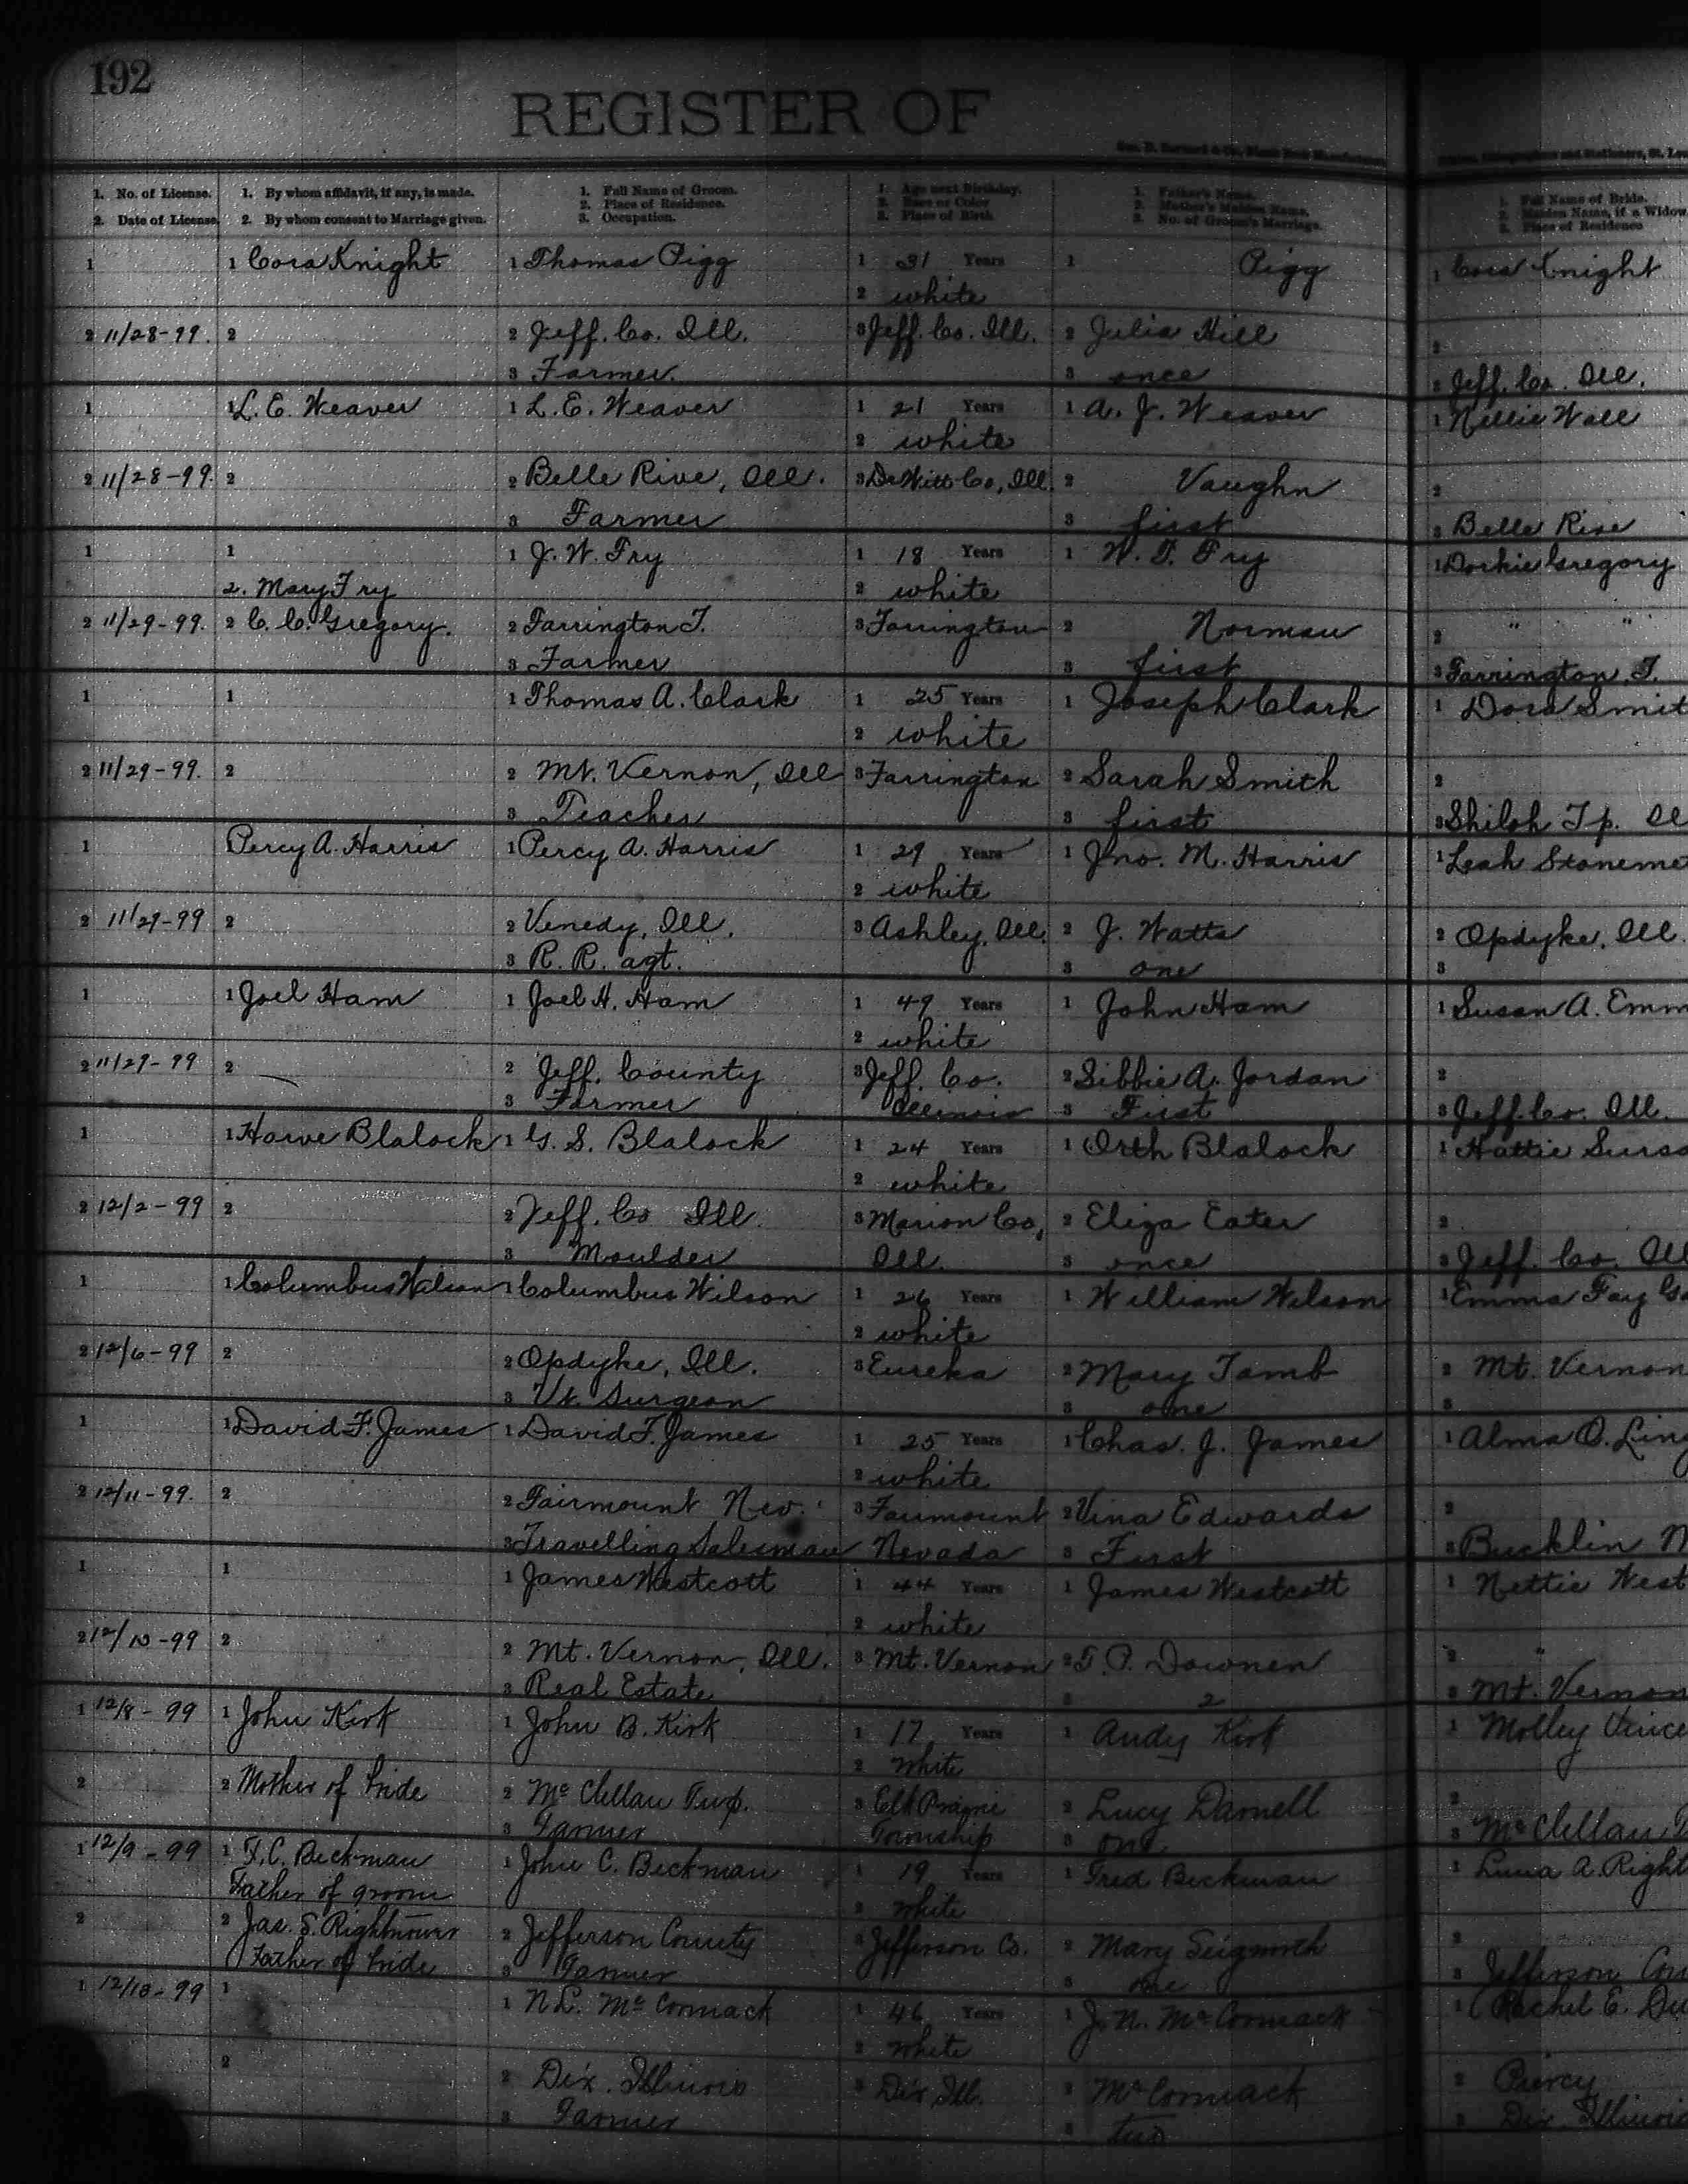 192
REGISTER OF
1. No. of License.
2. Date of License.
1. By whom affidavit, if any, is made.
2. By whom consent to Marriage given.
1. Full Name of Groom.
2. Place of Residence.
3. Occupation.
1. Age next Birthday.
2. Race or Color
3. Place of Birth.
1. Father's Name.
2. Mother's Maiden Name.
3. No. of Groom's Marriage.
1. Full Name of Bride.
2. Maiden Name, if a Widow.
3. Place of Residence
1 1 Cora Knight 1 Thomas Pigg 1 31 Years 1 Pigg 1 Cora Knight
2 white
2 11/28-99. 2 2 Jeff. Co. Ill. 3 Jeff. Co. Ill. 2 Julia Hill 2
3 Farmer. 3 once 3 Jeff. Co. Ill.
1 1 L. E. Weaver 1 L. E. Weaver 1 21 Years 1 A. J. Weaver 1 Nellie Wall
2 white
2 11/28-99. 2 2 Belle Rive, Ill. 3 DeWitt Co, Ill. 2 Vaughn 2
3 Farmer 3 first 3 Belle Rive
1 1 1 J. W. Fry 1 18 Years 1 W. T. Fry 1 Gregory
2. Mary Fry 2 white
2 11/29-99. 2 C. C. Gregory. 2 Farrington T. 3 Farrington 2 Norman 2 " "
3 Farmer 3 first 3 Farrington. T.
1 1 1 Thomas A. Clark 1 25 Years 1 Joseph Clark 1 Dora Smit
2 white
2 11/29-99. 2 2 Mt. Vernon, Ill 3 Farrington 2 Sarah Smith 2
3 Teacher 3 first 3 Shiloh Tp. Il
1 Percy A. Harris 1 Percy A. Harris 1 29 Years 1 Jno. M. Harris 1 Leah Stoneme
2 white
2 11/29-99 2 2 Venedy, Ill. 3 Ashley, Ill. 2 J. Watts 2 Opdyke, Ill.
3 R. R. agt. 3 one 3
1 1 Joel Ham 1 Joel H. Ham 1 49 Years 1 John Ham 1 Susan A. Emm
2 white
2 11/29-99 2 2 Jeff. County 3 Jeff. Co. 2 Sibbie A. Jordan 2
3 Farmer Illinois 3 First 3 Jeff. Co. Ill.
1 1 Harve Blalock 1 G. S. Blalock 1 24 Years 1 Orth Blalock 1 Hattie
2 white
2 12/2-99 2 2 Jeff. Co Ill. 3 Marion Co, 2 Eliza Eater 2
3 Moulder Ill. 3 once 3 Jeff. Co. Ill
1 1 Columbus Wilson 1 Columbus Wilson 1 26 Years 1 William Wilson 1 Emma Fay
2 white
2 12/6-99 2 2 Opdyke, Ill. 3 Eureka 2 Mary Tamb 2 Mt. Vernon
3 Vt. Surgeon 3 one 3
1 1 David F. James 1 David F. James 1 25 Years 1 Chas. J. James 1 Alma O. Ling
2 white
2 12/11-99. 2 2 Fairmount Nev. 3 Fairmount 2 Vina Edwards 2
3 Travelling Salesman Nevada 3 First 3 Bucklin
1 1 1 James Westcott 1 44 Years 1 James Westcott 1 Nettie West
2 white
2 12/10-99 2 2 Mt. Vernon, Ill. 3 Mt. Vernon 2 Downen 2 "
3 Real Estate 3 2 3 Mt. Vernon
1 12/8-99 1 John Kirk 1 John B. Kirk 1 17 Years 1 Andy Kirk 1 Molley Vince
2 white
2 2 Mother of bride 2 McClellan Twp. 3 Elk Prairie 2 Lucy Darnell 2
3 Farmer Township 3 one 3 McClellan
1 12/9-99 1 F. C. Beckman 1 John C. Beckman 1 19 Years 1 Fred Beckman 1 A. Right
Father of groom 2 white
2 2 Jas. S. Rightnower 2 Jefferson County 3 Jefferson Co. 2 Mary Seigworth 2
Father of bride 3 Farmer 3 one 3 Jefferson Cou
1 12/10-99 1 1 N. L. McCormack 1 46 Years 1 J. N. McCormack 1 Rachel E.
2 white
2 2 Dix. Illinois 3 Dix Ill. 2 McCormack 2 Piercy
3 Farmer 3 two 3 Dix. Illinois